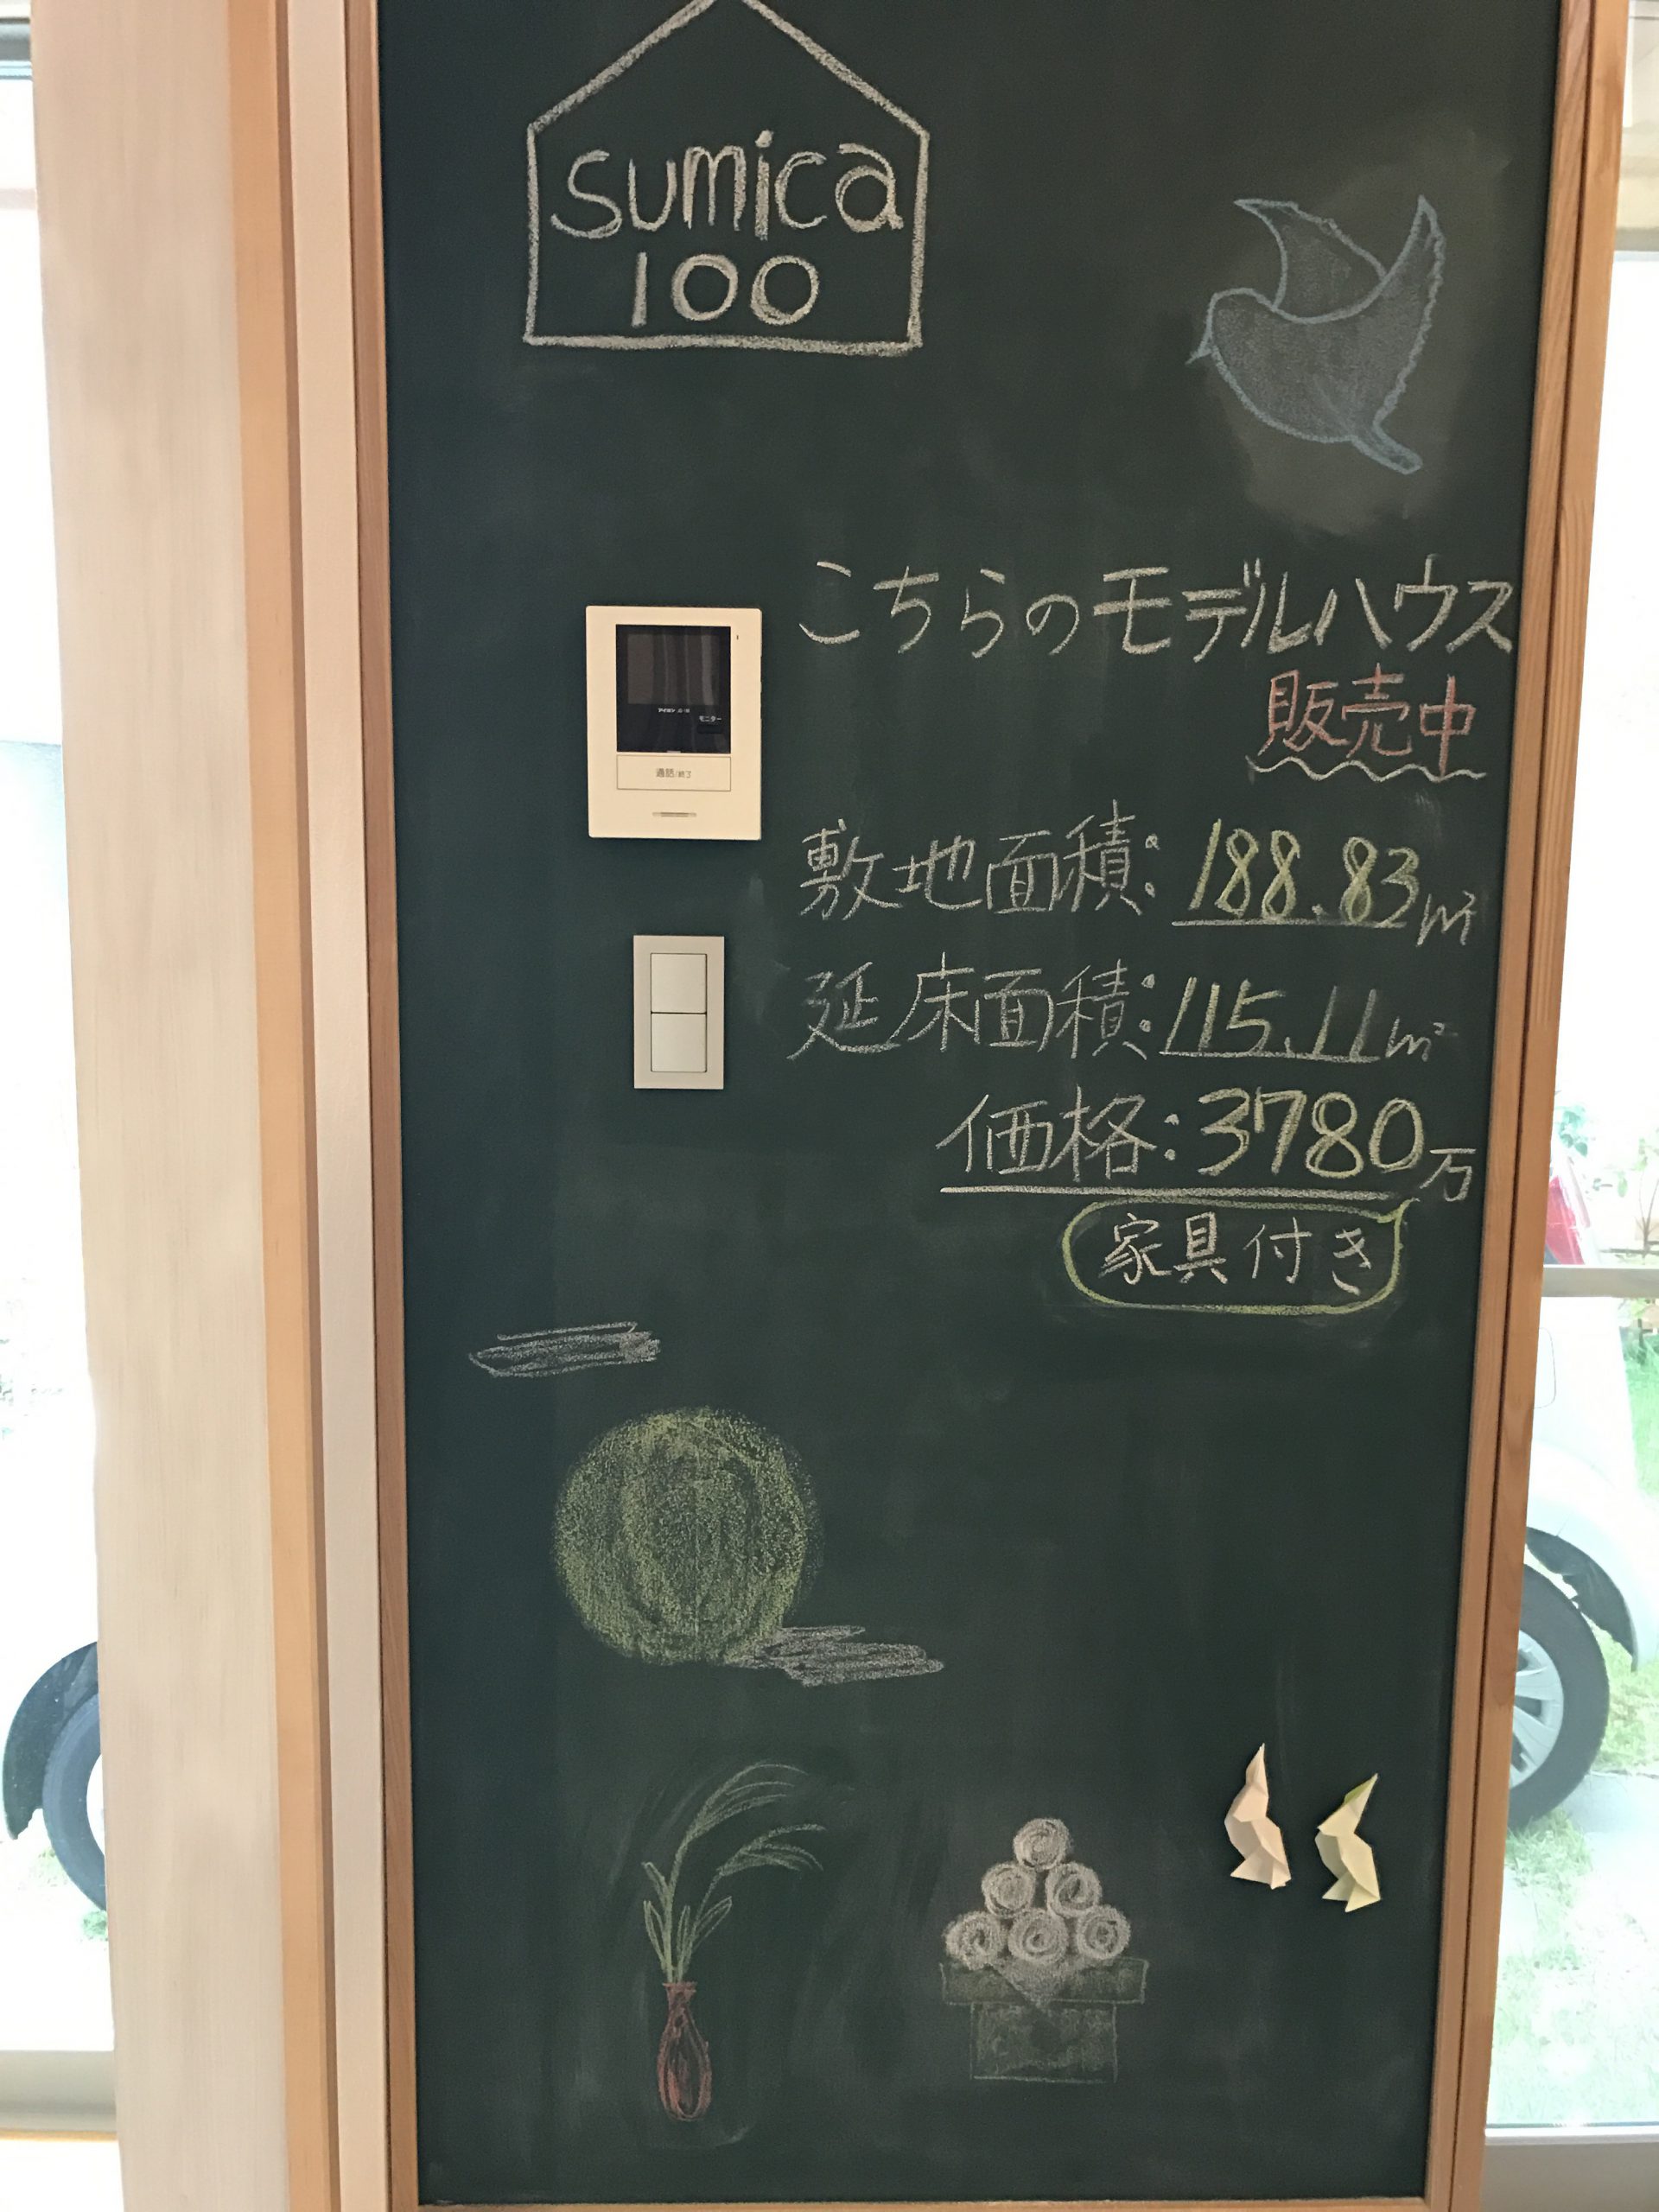 sumica
100
こちらのモデルハウス
販売中
モニター
通話/終了
敷地面積:188.83㎡
延床面積:115.11㎡
価格:3780万
家具付き